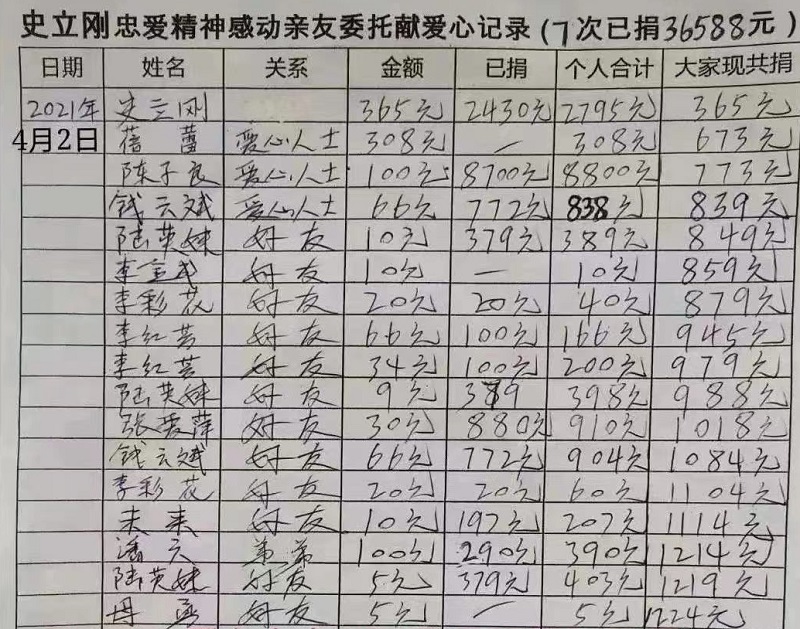 史立刚忠爱精神感动亲友委托献爱心记录(7次已捐36588元)
日期 姓名 关系 金额 已捐 个人合计 大家现共捐
2021年 史立刚 365元 2430元 2795元 365元
4月2日 蓓蕾 爱心人士 308元 — 308元 673元
陈子良 爱心人士 100元 8700元 8800元 773元
钱云斌 爱心人士 66元 772元 838元 839元
陆英妹 好友 10元 379元 389元 849元
李金民 好友 10元 — 10元 859元
李彩花 好友 20元 20元 40元 879元
李红芸 好友 66元 100元 166元 945元
李红芸 好友 34元 100元 200元 979元
陆英妹 好友 9元 389 398元 988元
张爱萍 好友 30元 880元 910元 1018元
钱云斌 好友 66元 772元 904元 1084元
李彩花 好友 20元 20元 60元 1104元
未来 好友 10元 197元 207元 1114元
潘六 弟弟 100元 290元 390元 1214元
陆英妹 好友 5元 379元 403元 1219元
好友 5元 — 5元 1224元